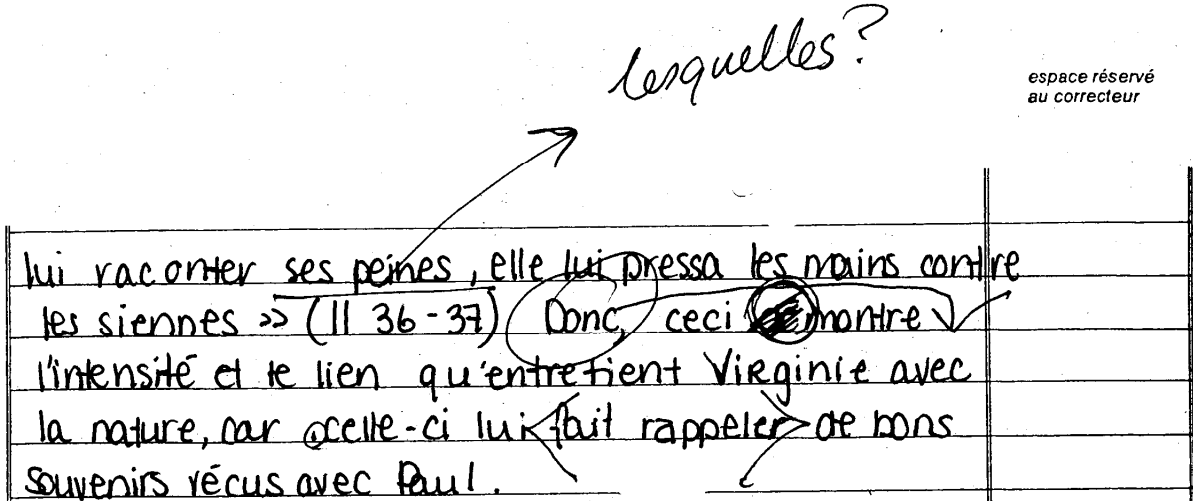 lesquelles?
espace réservé
au correcteur
lui raconter ses peines, elle lui pressa les mains contre
les siennes >> (ll 36-37) Donc, ceci montre
l'intensité et le lien qu'entretient Virginie avec
la nature, car celle-ci lui fait rappeler de bons
souvenirs vécus avec Paul.